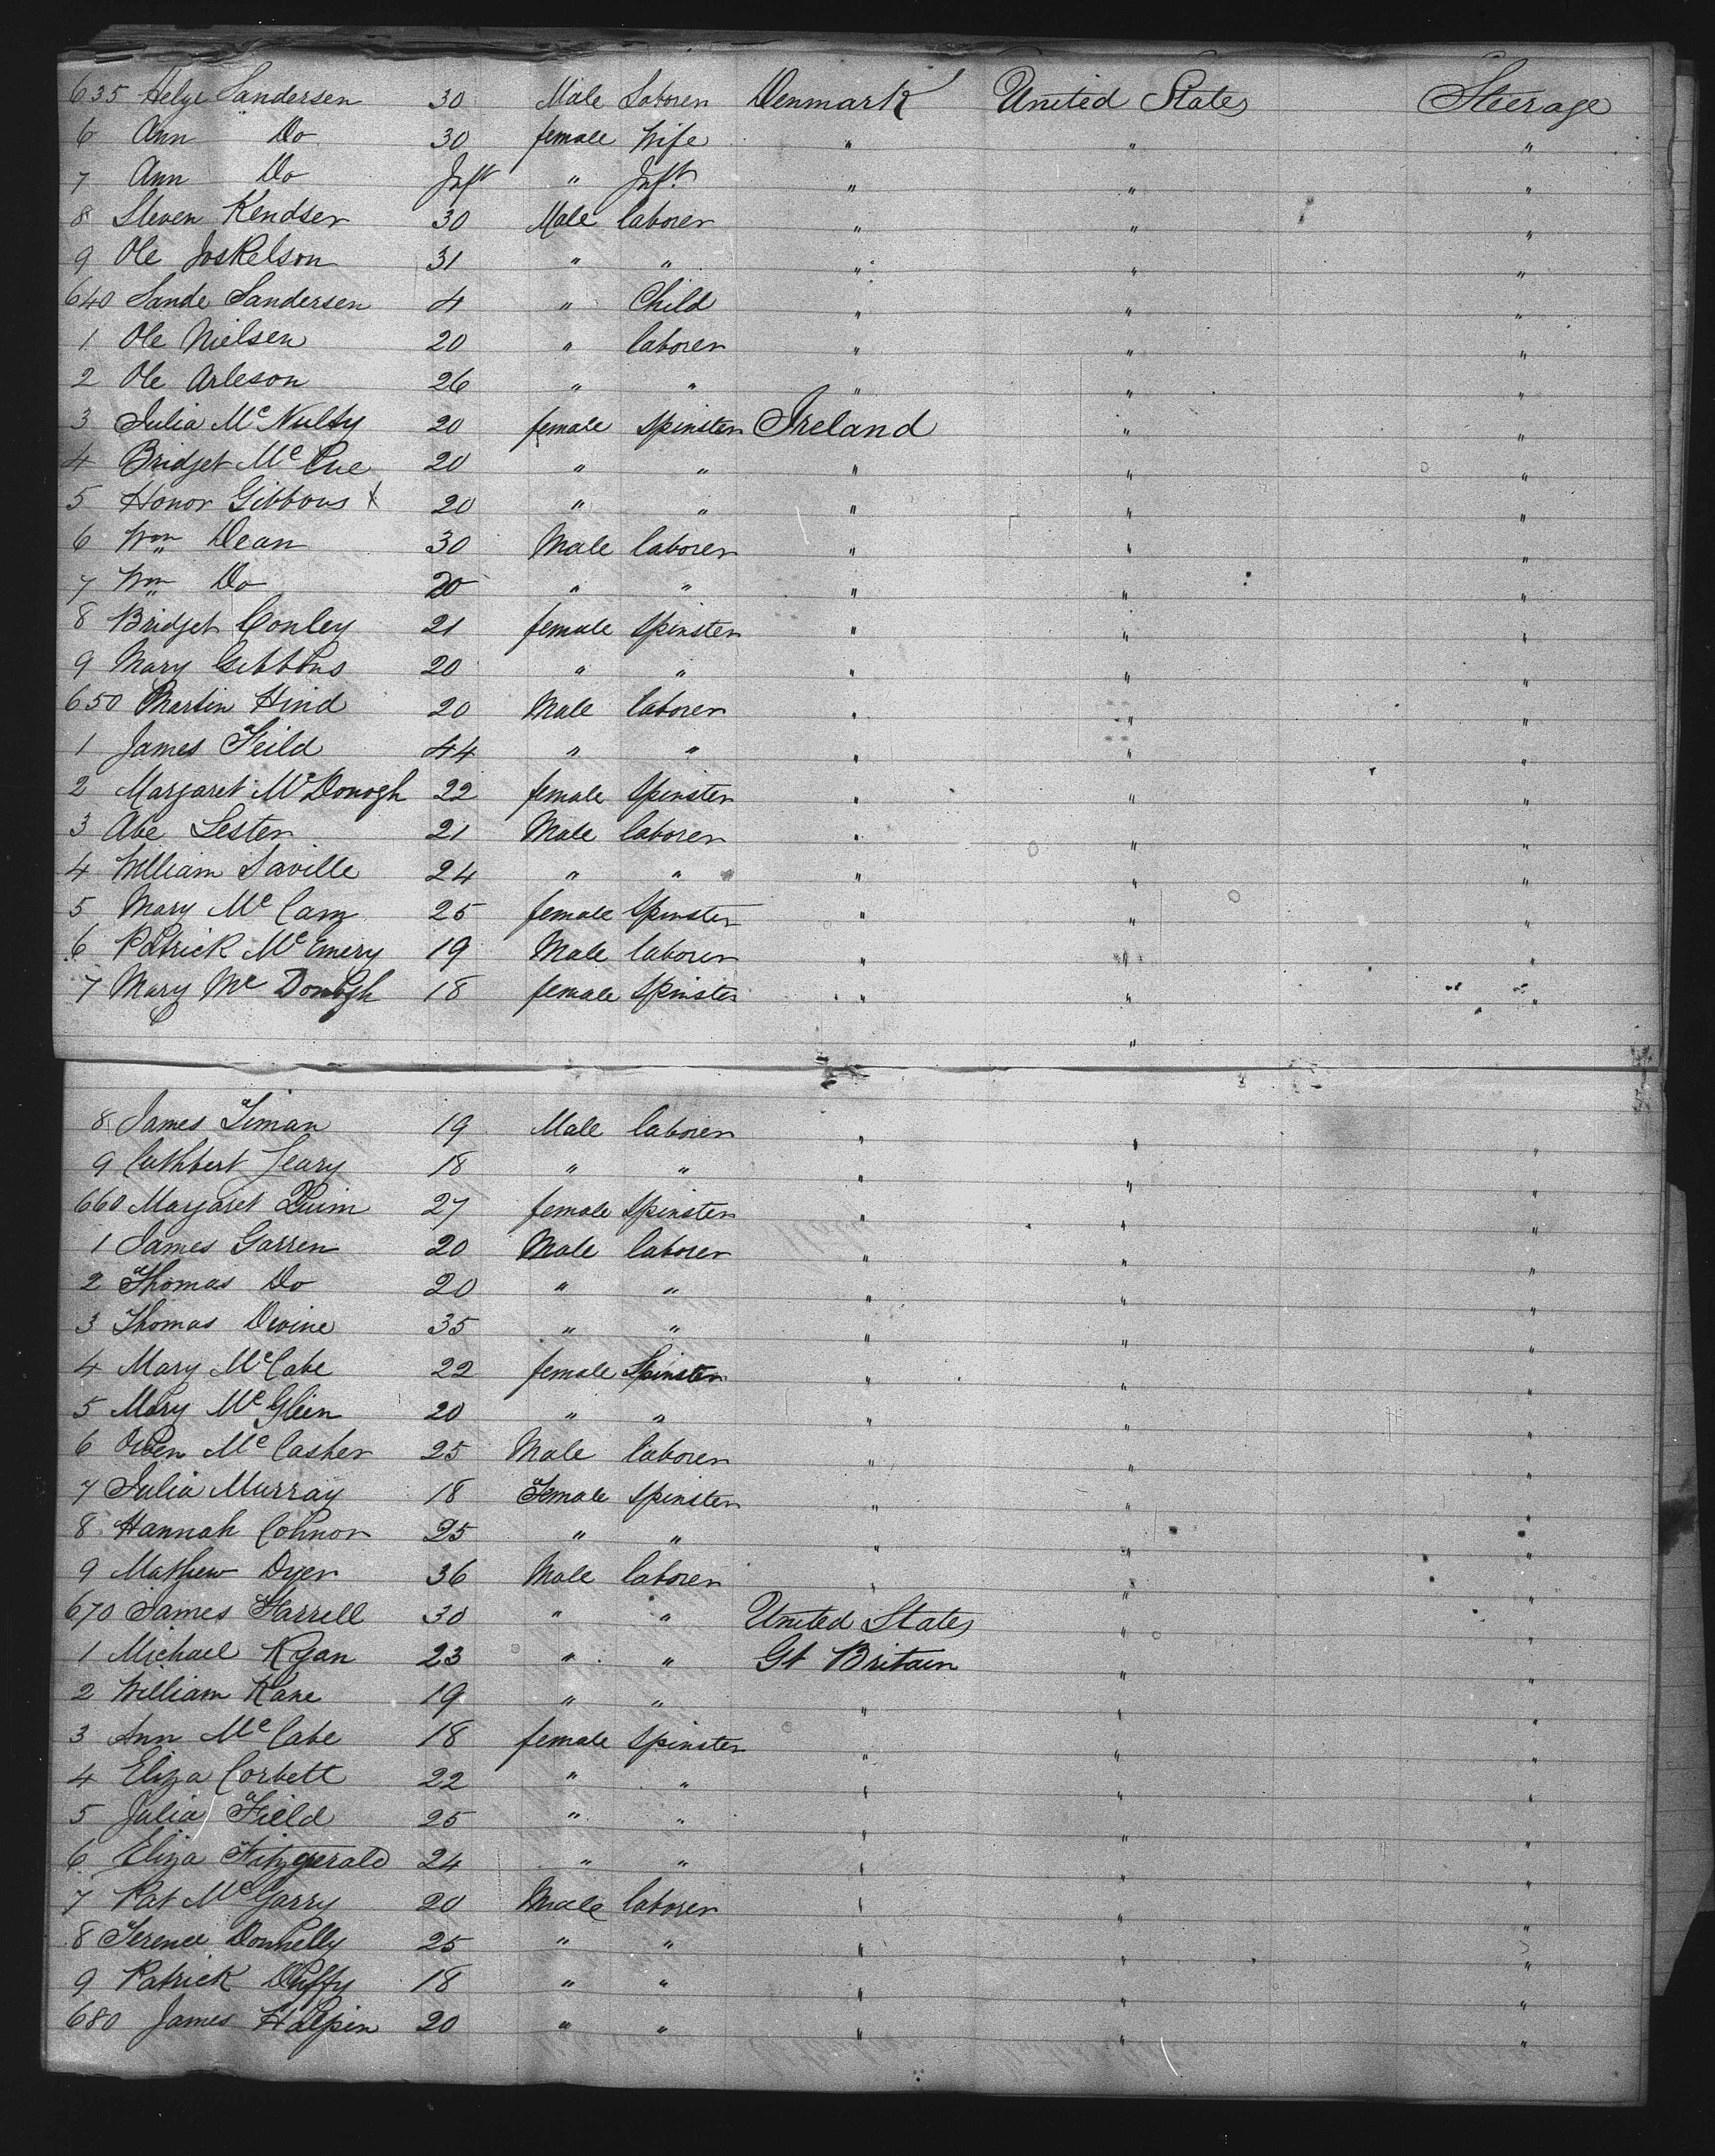 635 Helge Sandersen 30 Male Laborer Denmark United States Steerage
6 Ann Do 30 female Wife " " "
7 Ann Do Inft " Inft " " "
8 Steven Kendser 30 Male laborer " " "
9 Ole Joskelson 31 " " " " "
640 Sande Sandersen 4 " Child " " "
1 Ole Nielsen 20 " laborer " " "
2 Ole Arleson 26 " " " " "
3 Julia McNulty 20 female Spinster Ireland " "
4 Bridget McCue 20 " " " " "
5 Honor Gibbons x 20 " " " " "
6 Wm Dean 30 Male laborer " " "
7 Wm Do 20 " " " " "
8 Bridget Conley 21 female Spinster " " "
9 Mary Gibbons 20 " " " " "
650 Martin Hind 20 Male laborer " " "
1 James Feild 44 " " " " "
2 Margaret McDonogh 22 female Spinster " " "
3 Abe Lester 21 Male laborer " " "
4 William Saville 24 " " " " "
5 Mary McCam 25 female Spinster " " "
6 Patrick McEmery 19 Male laborer " " "
7 Mary Mc Donogh 18 female Spinster " " "
"
8 James Timan 19 Male laborer " " "
9 Cuthbert Leary 18 " " " " "
660 Margaret Quim 27 female Spinster " " "
1 James Garren 20 Male laborer " " "
2 Thomas Do 20 " " " " "
3 Thomas Devine 35 " " " " "
4 Mary McCabe 22 female Spinster " " "
5 Mary McGlein 20 " " " " "
6 Owen McCasher 25 Male laborer " " "
7 Julia Murray 18 Female Spinster " " "
8 Hannah Connor 25 " " " " "
9 Mathew Dyer 36 Male laborer " " "
670 James Farrell 30 " " United States " "
1 Michael Ryan 23 " " Gt Britain " "
2 William Kane 19 " " " " "
3 Ann McCabe 18 female Spinster " " "
4 Eliza Corbett 22 " " " " "
5 Julia Field 25 " " " " "
6 Eliza Fitzgerald 24 " " " " "
7 Pat McGarry 20 Male laborer " " "
8 Terence Donnelly 25 " " " " "
9 Patrick Duffy 18 " " " " "
680 James Halpin 20 " " " " "